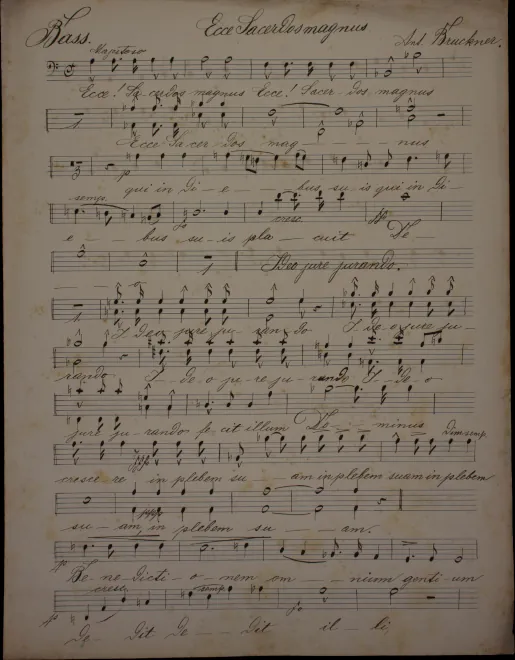 Bass. Ecce Sacerdos magnus Ant. Bruckner.
Maestoso
Ecce! Sacerdos magnus Ecce! Sacer- dos magnus
Ecce Sacer dos mag - - - - nus
p
qui in Di - e - - - bus, su- is qui in Di-
semp. cresc.
e - - bus su- is pla - cuit De-
Ideo jure jurando.
I Deo jure ju- ran- do I de o jure ju-
rando I - de - o ju- re ju- rando I- de- o
jure ju- rando fe cit illum Do - - minus
Dim semp.
cresce re in plebem su - am in plebem suam in plebem
su - am, in plebem su - - - am.
Be- ne- dicti - o - nem om - - - nium genti - um
cresc. semp.
De - dit De - - dit il - li,